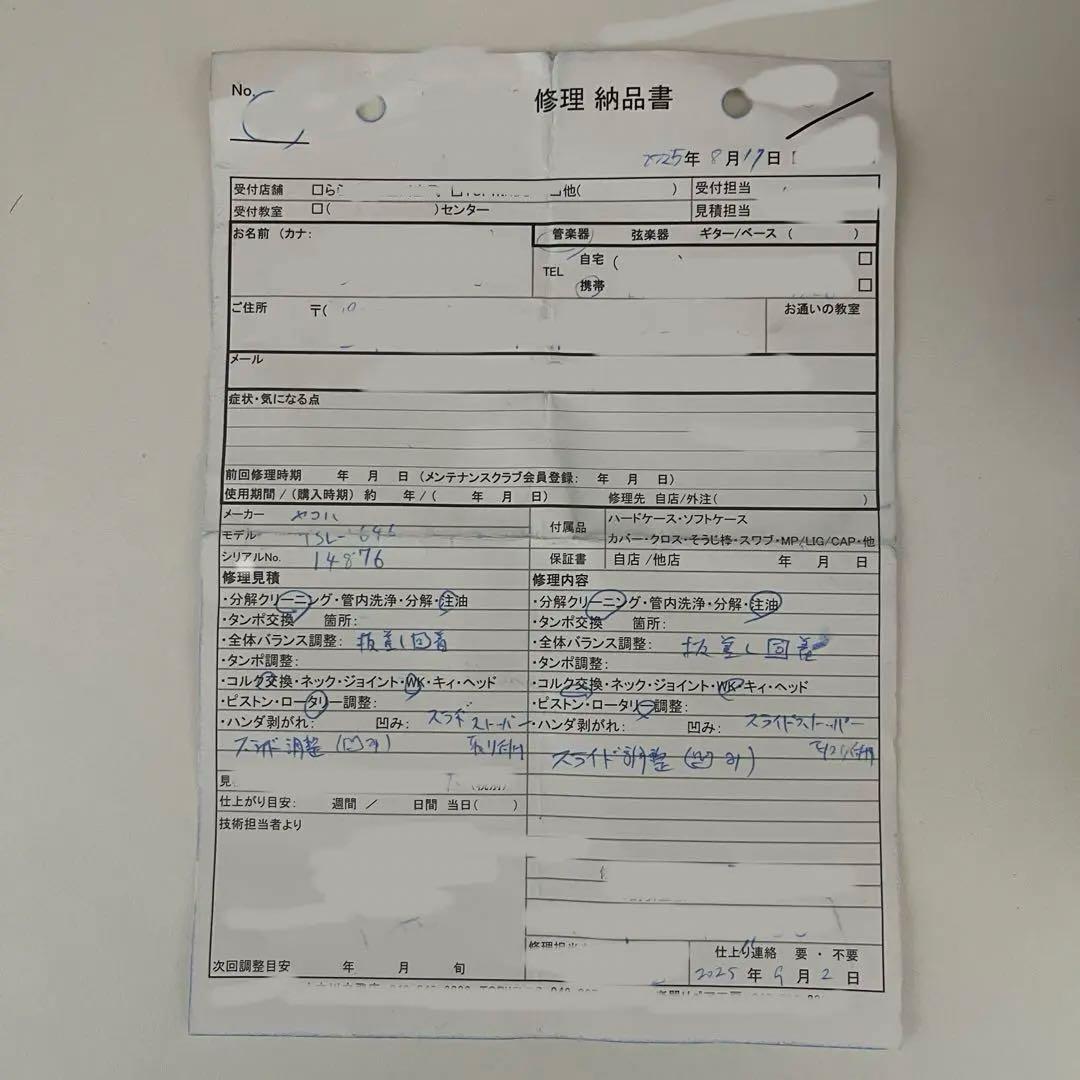 No.
修理 納品書
2025年 8月17日
受付店舗 □ら 他( ) 受付担当
受付教室 □( )センター 見積担当
お名前 (カナ: 管楽器 弦楽器 ギター/ベース ( )
TEL 自宅 ( □
携帯 □
ご住所 〒( お通いの教室
メール
症状・気になる点
前回修理時期 年 月 日 (メンテナンスクラブ会員登録: 年 月 日)
使用期間 / (購入時期) 約 年 / ( 年 月 日) 修理先 自店/外注( )
メーカー ヤマハ 付属品 ハードケース・ソフトケース
モデル カバー・クロス・そうじ棒・スワブ・MP/LIG/CAP・他
シリアルNo. 14876 保証書 自店 /他店 年 月 日
修理見積 修理内容
・分解クリーニング・管内洗浄・分解・注油 ・分解クリーニング・管内洗浄・分解・注油
・タンポ交換 箇所: ・タンポ交換 箇所:
・全体バランス調整: 抜差し固着 ・全体バランス調整: 抜差し固着
・タンポ調整: ・タンポ調整:
・コルク交換・ネック・ジョイント・WK・キィ・ヘッド ・コルク交換・ネック・ジョイント・WK・キィ・ヘッド
・ピストン・ロータリー調整: ・ピストン・ロータリー調整:
・ハンダ剥がれ: 凹み: スライドストッパー ・ハンダ剥がれ: 凹み: スライドストッパー
スライド調整 (凹み) 取り付け スライド調整 (凹み) 取り付け
見
仕上がり目安: 週間 / 日間 当日( )
技術担当者より
修理担当
仕上り連絡 要・不要
次回調整目安 年 月 旬 2025年 9月 2日